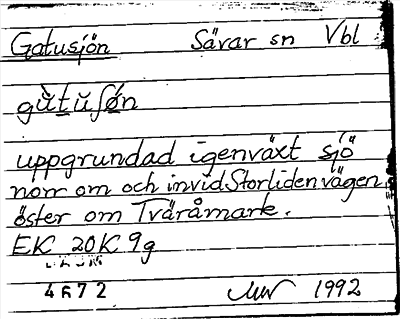 Gatusjön Sävar sn Vbl
gù̀tŭʃø̀n
uppgrundad igenväxt sjö
norr om och invid Storlidenvägen,
öster om Tväråmark.
EK 20K 9g
DAUM
4672 1992